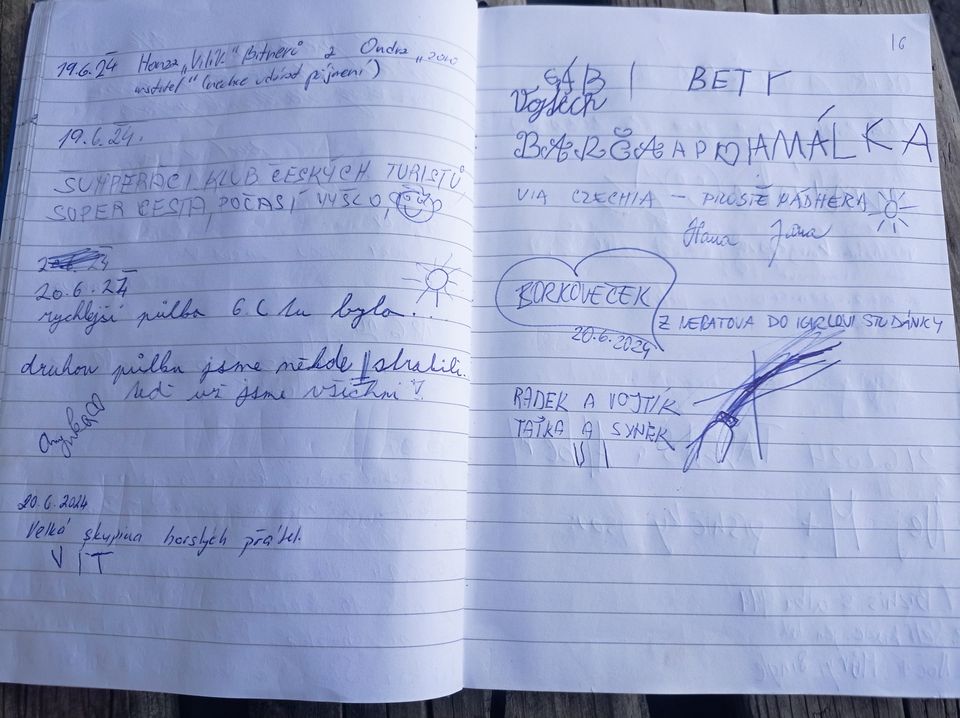 19.6.24 Honza „Vilík" Bitnerů a Ondra „zoro
institel" (nechce udávat příjmení)
19.6.24.
ŠUMPERÁCI KLUB ČESKÝCH TURISTŮ
SUPER CESTA, POČASÍ VYŠLO,
24
20.6.24
rychlejší půlka 6.C tu byla...
druhou půlku jsme někde ztratili.
teď už jsme všichni
20.6.2024
Velká skupina horských přátel.
VÍT
16
GÁBI BETY
Vojtěch
BARČA A PROAMÁLKA
VIA CZECHIA – PROSTĚ PÁDHERA
Hana Jana
BORKOVEČEK
20.6.2024
Z NERATOVA DO KARLOVI STUDÁNKY
RADEK A VOJTÍK
TAŤKA A SYNEK